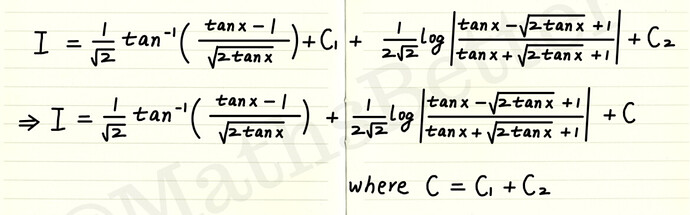 I = 1/√2 tan⁻¹( (tanx − 1)/√(2tanx) ) + C₁ + 1/(2√2) log| (tanx − √(2tanx) + 1)/(tanx + √(2tanx) + 1) | + C₂
⇒ I = 1/√2 tan⁻¹( (tanx − 1)/√(2tanx) ) + 1/(2√2) log| (tanx − √(2tanx) + 1)/(tanx + √(2tanx) + 1) | + C
where C = C₁ + C₂
©MathsBetter